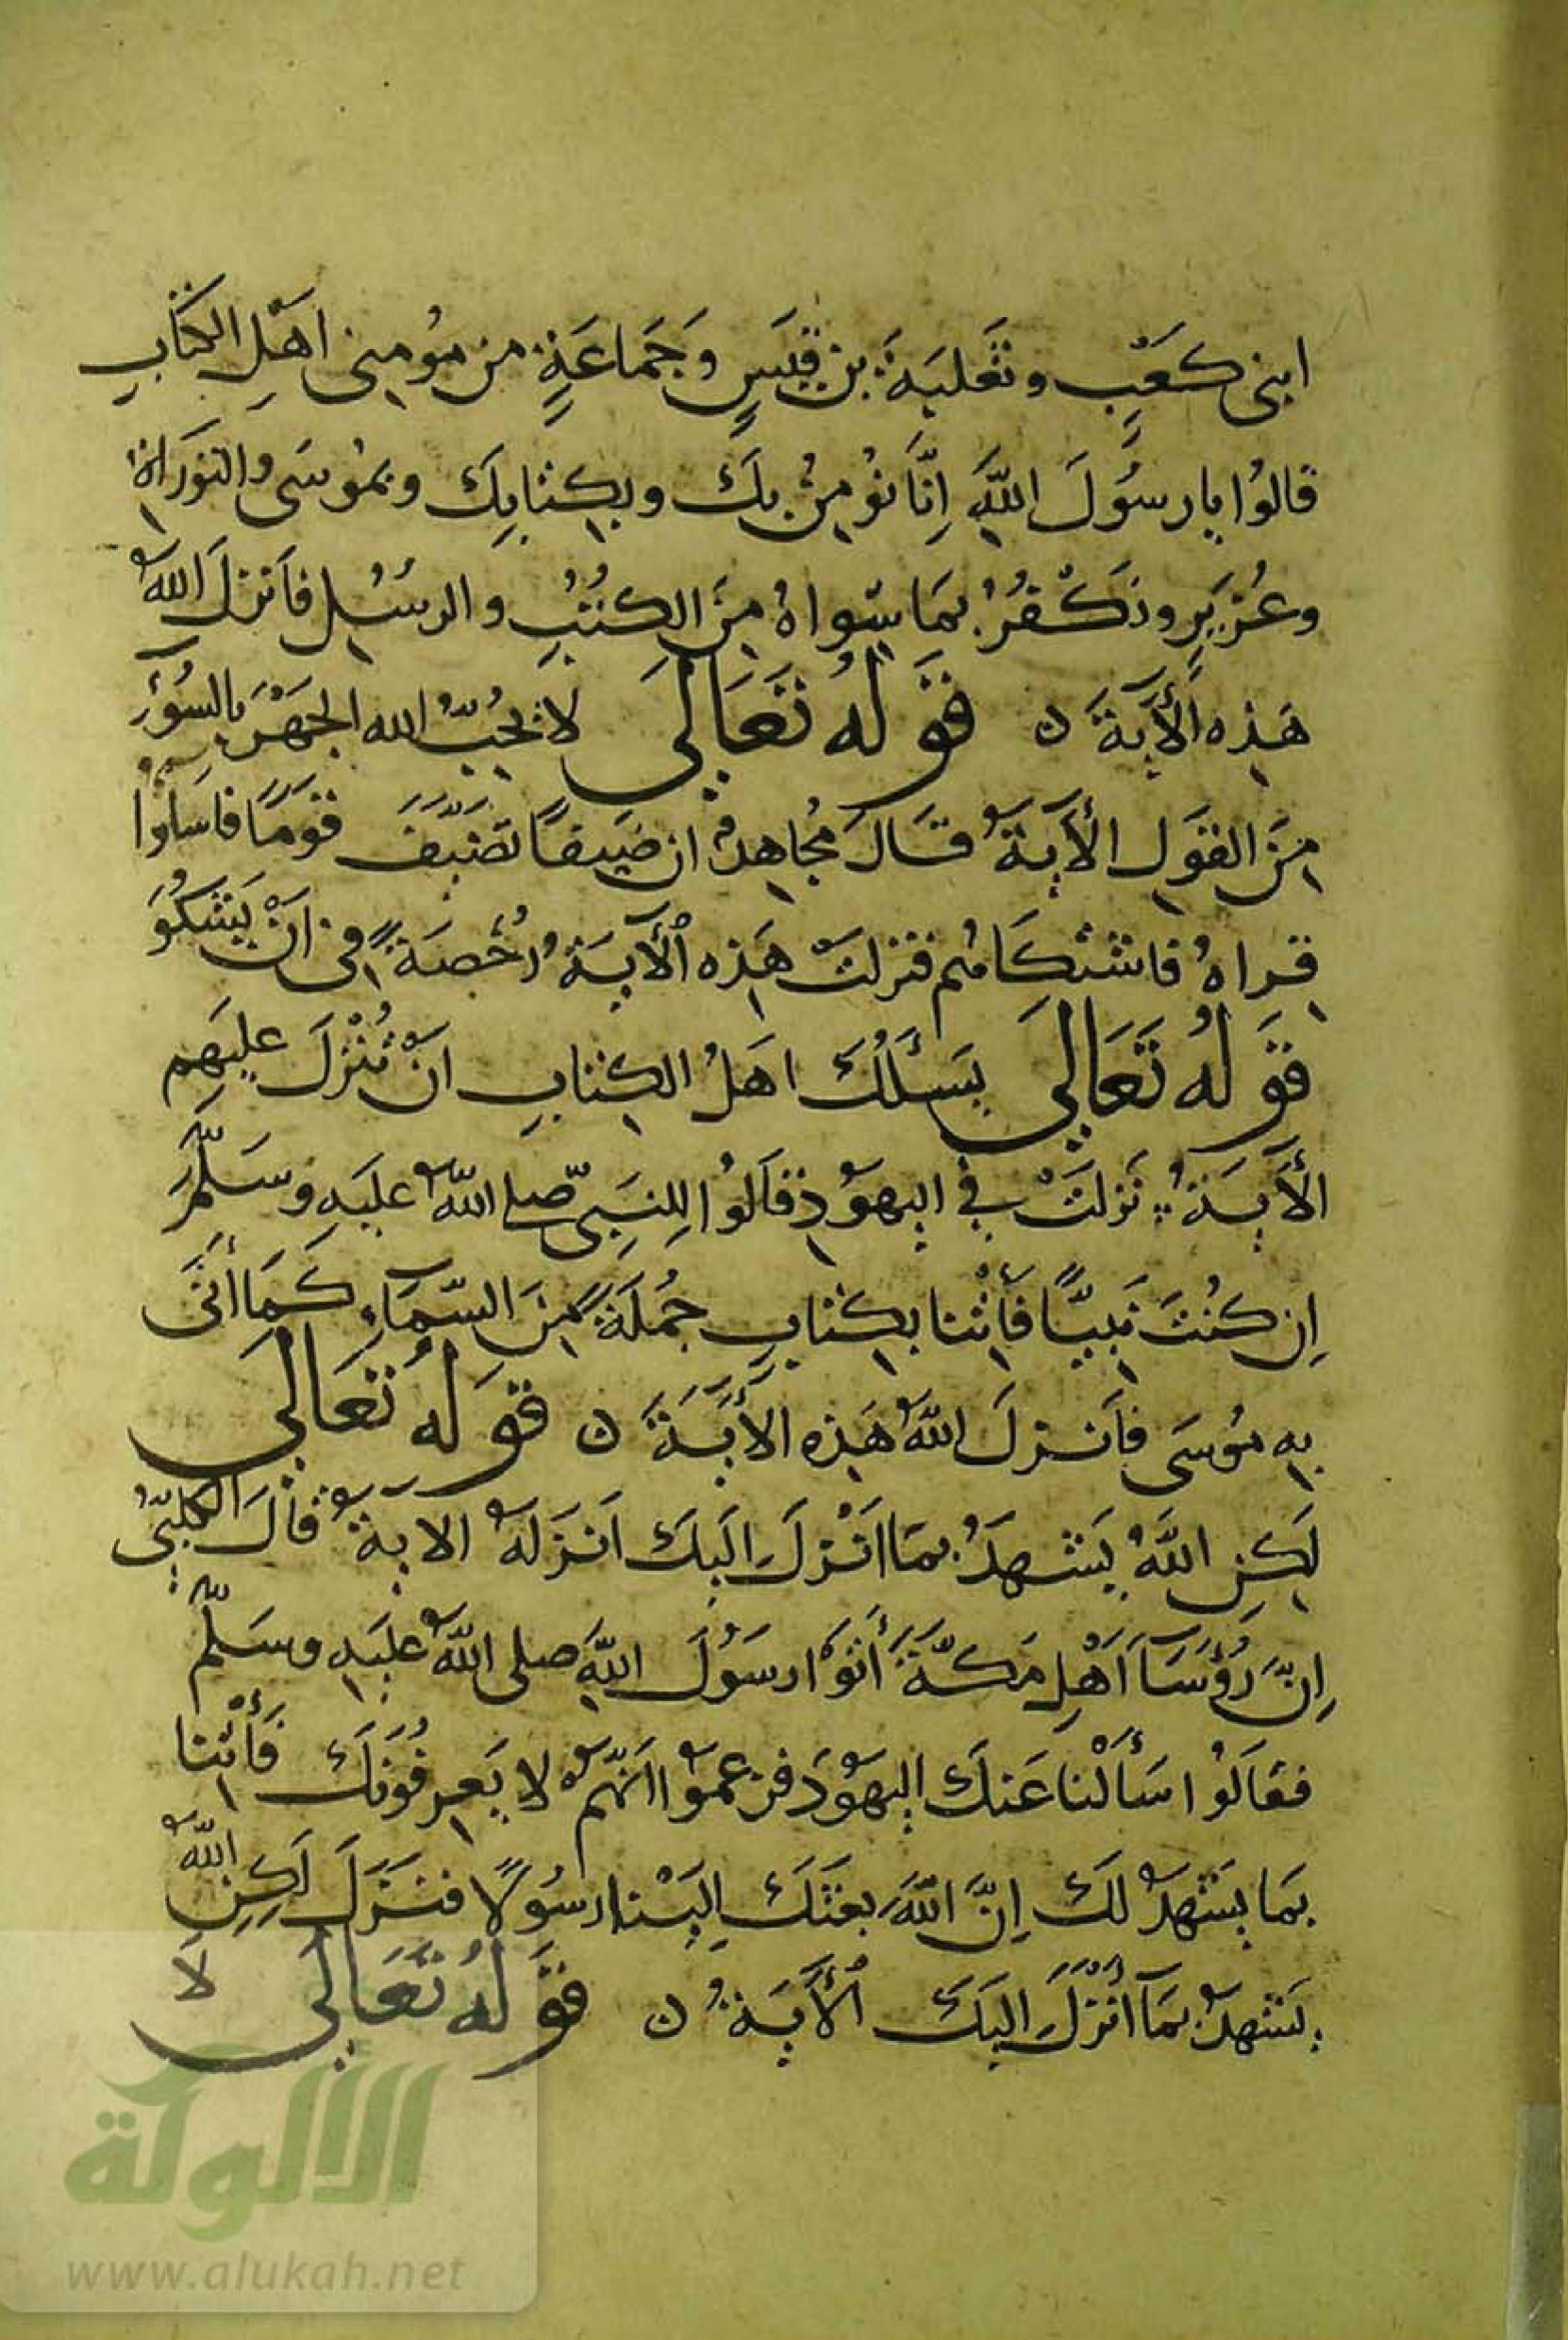 ابنى كعبٍ وثعلبة بن قيسٍ وجماعةٍ من مومنى اهل الكتابِ
قالوا يا رسول الله اِنّا نُومنُ بك وبكتابك وبموسى والتوراة
وعُزيرٍ ونكفرُ بما سواهُ من الكُتُبِ والرسُل فأنزل الله
هذه الأية ن قوله تعالى لا يحبّ الله الجهر بالسُوءِ
من القول الأية قال مجاهد ان ضيفًا تضيّف قومًا فاساوا
قراهُ فاشتكاهم فنزلت هذه الأية رُخصةً فى ان يشكُو
قوله تعالى يسئلُك اهلُ الكتاب انْ تُنزل عليهم
الأية نزلت في اليهود قالُوا للنبىّ صلى الله عليه وسلّم
اِن كنت نبيًّا فأتنا بكتاب جُملةً من السّماءِ كما أتى
به موسى فأنزل الله هذه الأية ن قوله تعالى
لكن اللهُ يشهدُ بما انزل اليك انزله الاية قال الكلبيّ
اِنّ رُؤسآ اَهْلِ مكّة أتوا رسول الله صلى الله عليه وسلّم
فقالوا سألنا عنك اليهود فزعموا انّهم لا يعرفونك فأتنا
بما يشهد لك اِنّ الله بعثك اِلينا رسولًا فنزل لكن الله
يشهدُ بما أُنزل اليك الأية ن قوله تعالى لا
الألوكة
www.alukah.net